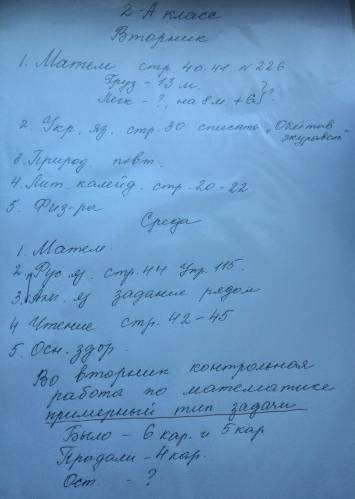 2-А класс
Вторник
1. Матем стр 40.41 N 226
Груз - 13 м.
Легк - ?, на 8 м + 6 } ?
2. Укр. яз. стр. 30 списать
3. Природ повт.
4. Лит. калейд. стр. 20-22
5. Физ-ра
Среда
1. Матем.
2. Рус яз. стр. 44 Упр. 115.
3. Анг. яз задание рядом
4 Чтение стр. 42-45
5. Осн. здор.
Во вторник контрольная
работа по математике
примерный тип задачи
Было - 6 кар. и 5 кар
Продали - 4 кар.
Ост. - ?